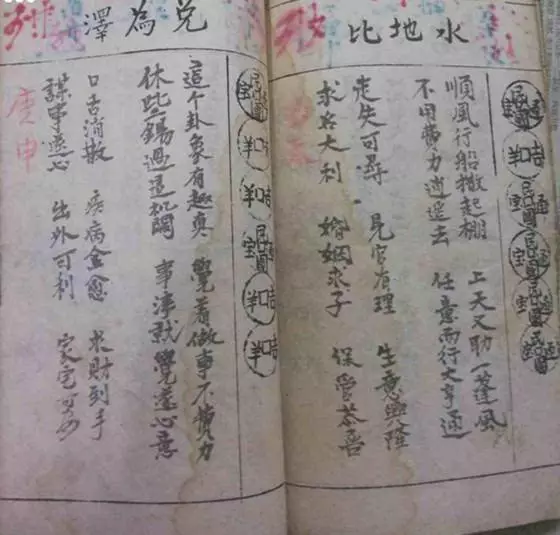 水地比
順風行船撒起棚 上天又助一蓬風
不用費力逍遥去 任意而行大亨通
走失可尋 見官有理 生意興隆
求名大利 婚姻求子 保管恭喜
兌為澤
這个卦象有趣真 覺着做事不費力
休 過這机関 事 就覺遂心意
口舌消散 疾病全愈 求財到手
謀事遂心 出外可利 家宅
庚申